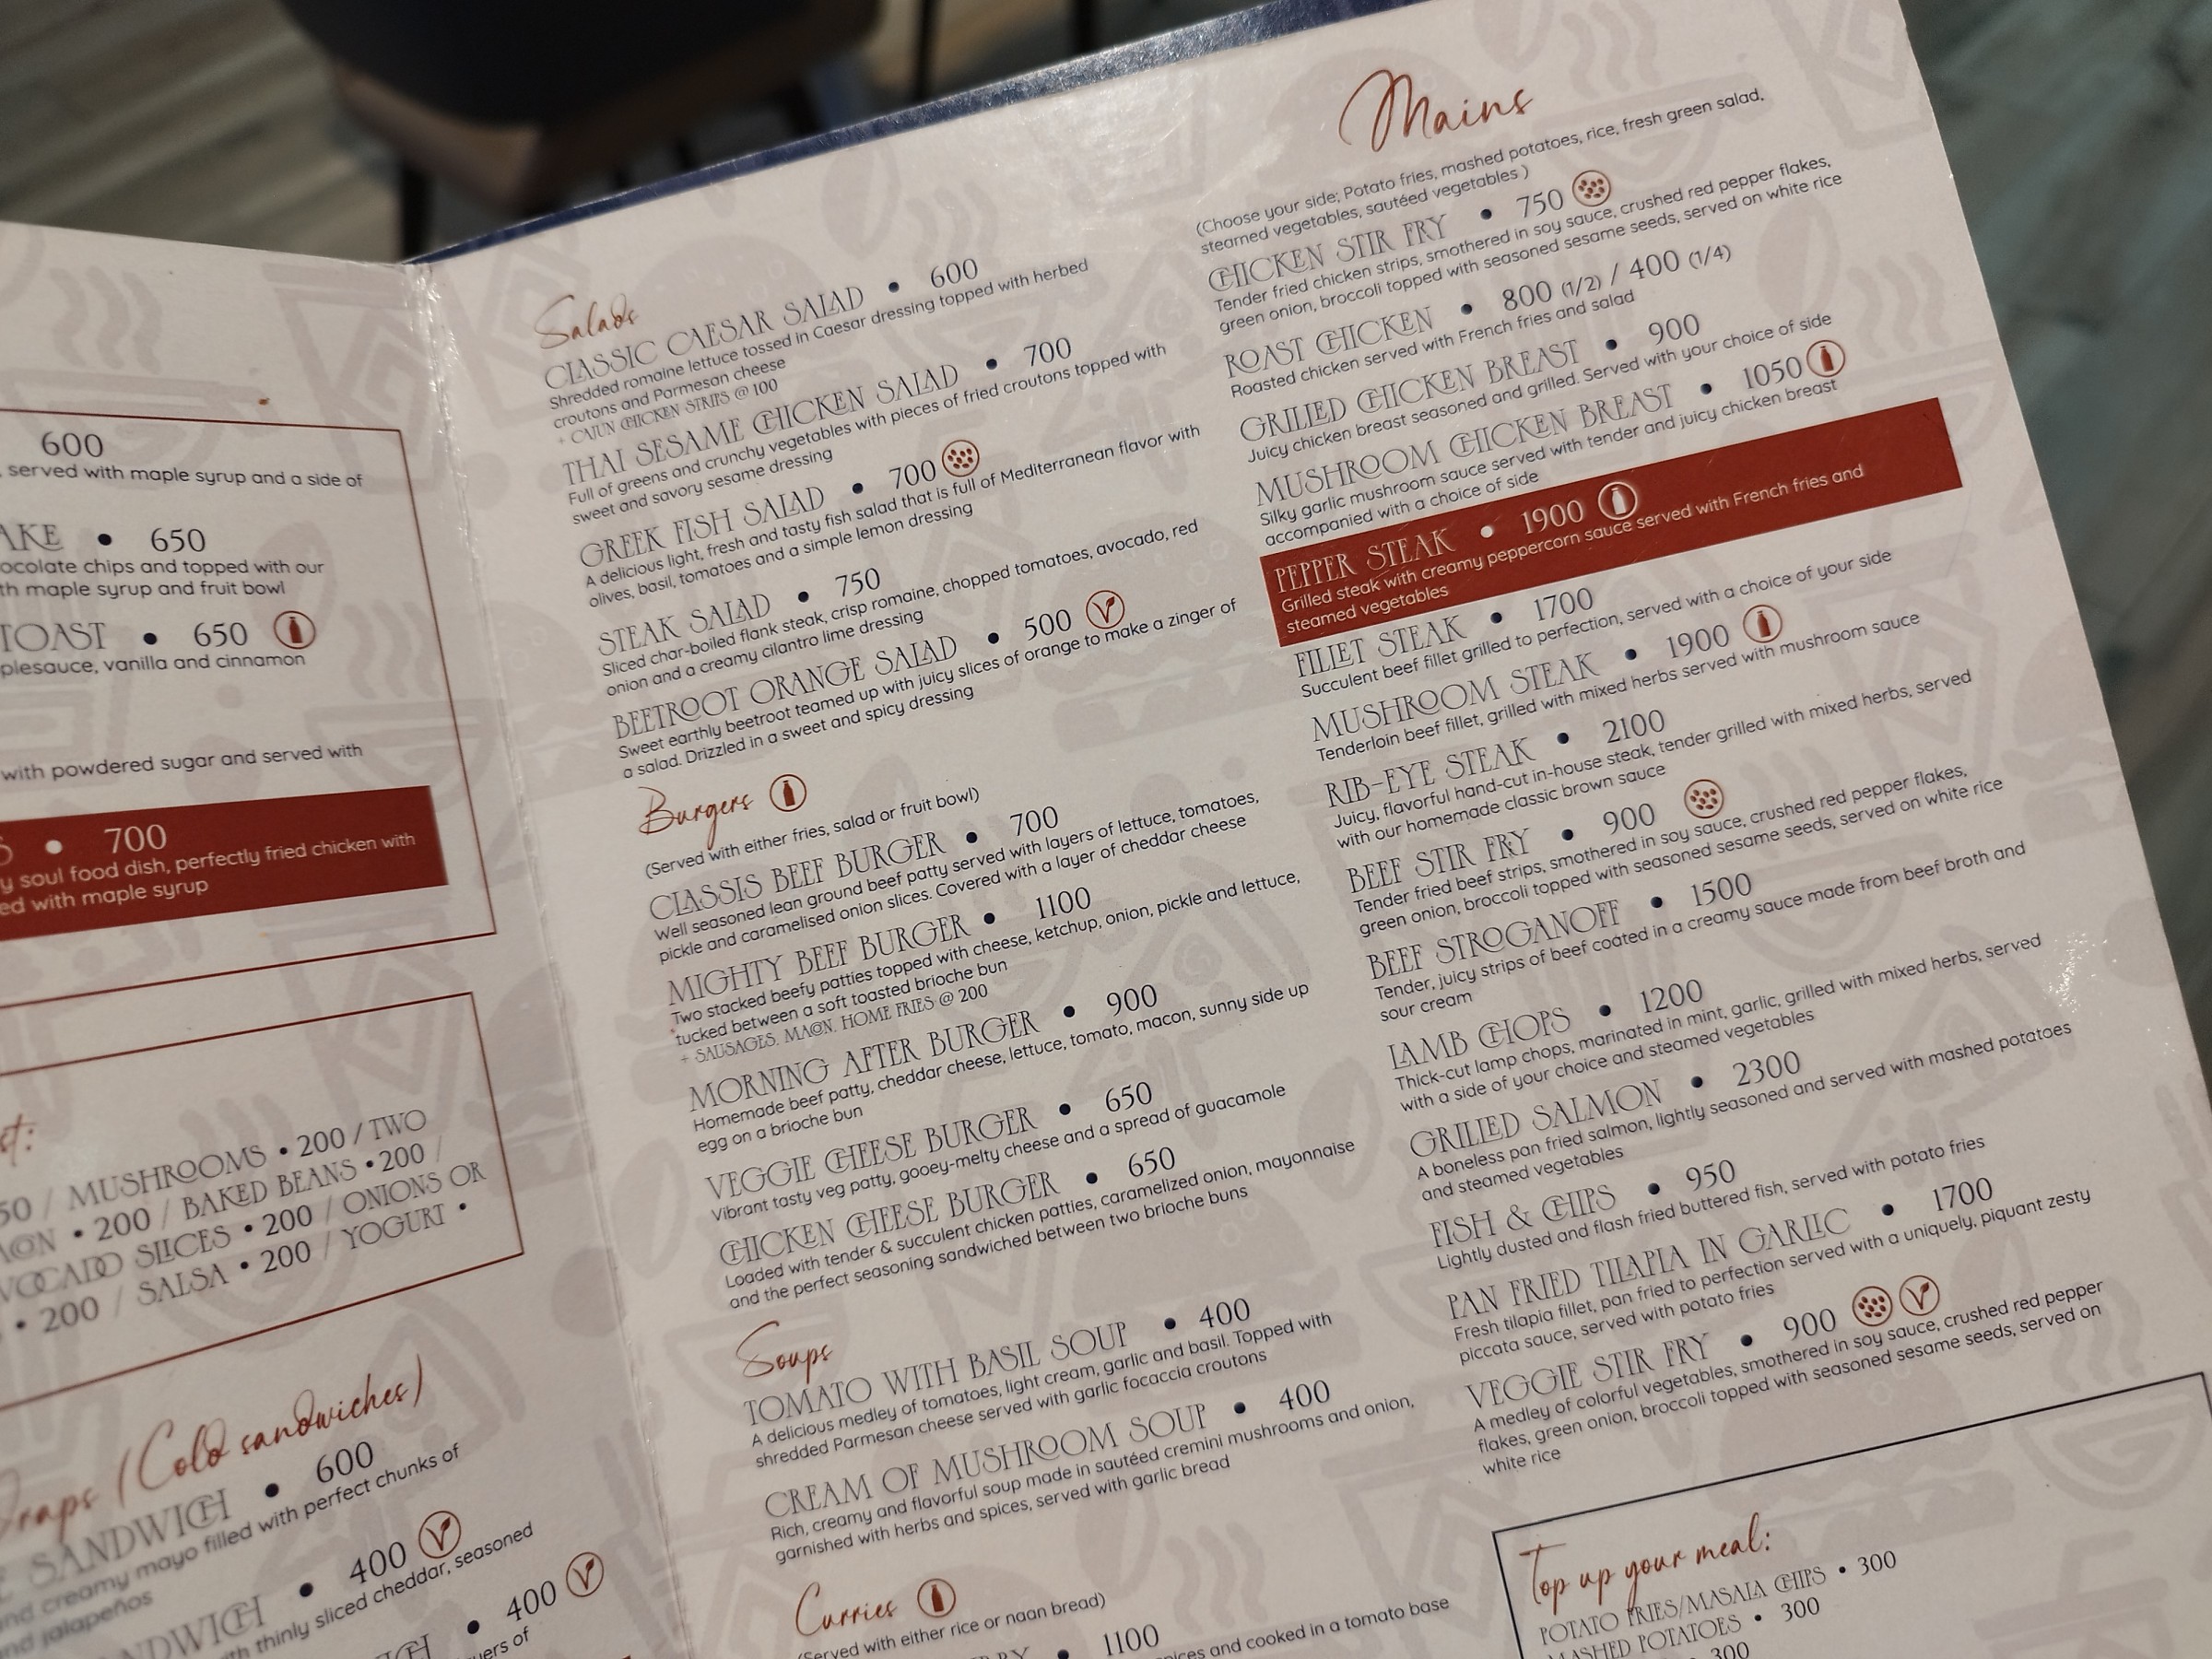 600
served with maple syrup and a side of
AKE • 650
ocolate chips and topped with our
th maple syrup and fruit bowl
TOAST • 650
plesauce, vanilla and cinnamon
with powdered sugar and served with
S • 700
y soul food dish, perfectly fried chicken with
ed with maple syrup
st:
50 / MUSHROOMS • 200 / TWO
ACON • 200 / BAKED BEANS • 200 /
VOCADO SLICES • 200 / ONIONS OR
• 200 / SALSA • 200 / YOGURT •
raps (Cold sandwiches)
E SANDWICH • 600
and creamy mayo filled with perfect chunks of
and jalapeños
NDWICH • 400
with thinly sliced cheddar, seasoned
ICH • 400
yers of
Salads
CLASSIC CAESAR SALAD • 600
Shredded romaine lettuce tossed in Caesar dressing topped with herbed
croutons and Parmesan cheese
+ CAJUN CHICKEN STRIPS @ 100
THAI SESAME CHICKEN SALAD • 700
Full of greens and crunchy vegetables with pieces of fried croutons topped with
sweet and savory sesame dressing
GREEK FISH SALAD • 700
A delicious light, fresh and tasty fish salad that is full of Mediterranean flavor with
olives, basil, tomatoes and a simple lemon dressing
STEAK SALAD • 750
Sliced char-boiled flank steak, crisp romaine, chopped tomatoes, avocado, red
onion and a creamy cilantro lime dressing
BEETROOT ORANGE SALAD • 500
Sweet earthly beetroot teamed up with juicy slices of orange to make a zinger of
a salad. Drizzled in a sweet and spicy dressing
Burgers
(Served with either fries, salad or fruit bowl)
CLASSIS BEEF BURGER • 700
Well seasoned lean ground beef patty served with layers of lettuce, tomatoes,
pickle and caramelised onion slices. Covered with a layer of cheddar cheese
MIGHTY BEEF BURGER • 1100
Two stacked beefy patties topped with cheese, ketchup, onion, pickle and lettuce,
tucked between a soft toasted brioche bun
+ SAUSAGES, MACON, HOME FRIES @ 200
MORNING AFTER BURGER • 900
Homemade beef patty, cheddar cheese, lettuce, tomato, macon, sunny side up
egg on a brioche bun
VEGGIE CHEESE BURGER • 650
Vibrant tasty veg patty, gooey-melty cheese and a spread of guacamole
CHICKEN CHEESE BURGER • 650
Loaded with tender & succulent chicken patties, caramelized onion, mayonnaise
and the perfect seasoning sandwiched between two brioche buns
Soups
TOMATO WITH BASIL SOUP • 400
A delicious medley of tomatoes, light cream, garlic and basil. Topped with
shredded Parmesan cheese served with garlic focaccia croutons
CREAM OF MUSHROOM SOUP • 400
Rich, creamy and flavorful soup made in sautéed cremini mushrooms and onion,
garnished with herbs and spices, served with garlic bread
Curries
(Served with either rice or naan bread)
• 1100
pices and cooked in a tomato base
Mains
(Choose your side; Potato fries, mashed potatoes, rice, fresh green salad,
steamed vegetables, sautéed vegetables )
CHICKEN STIR FRY • 750
Tender fried chicken strips, smothered in soy sauce, crushed red pepper flakes,
green onion, broccoli topped with seasoned sesame seeds, served on white rice
ROAST CHICKEN • 800 (1/2) / 400 (1/4)
Roasted chicken served with French fries and salad
GRILLED CHICKEN BREAST • 900
Juicy chicken breast seasoned and grilled. Served with your choice of side
MUSHROOM CHICKEN BREAST • 1050
Silky garlic mushroom sauce served with tender and juicy chicken breast
accompanied with a choice of side
PEPPER STEAK • 1900
Grilled steak with creamy peppercorn sauce served with French fries and
steamed vegetables
FILLET STEAK • 1700
Succulent beef fillet grilled to perfection, served with a choice of your side
MUSHROOM STEAK • 1900
Tenderloin beef fillet, grilled with mixed herbs served with mushroom sauce
RIB-EYE STEAK • 2100
Juicy, flavorful hand-cut in-house steak, tender grilled with mixed herbs, served
with our homemade classic brown sauce
BEEF STIR FRY • 900
Tender fried beef strips, smothered in soy sauce, crushed red pepper flakes,
green onion, broccoli topped with seasoned sesame seeds, served on white rice
BEEF STROGANOFF • 1500
Tender, juicy strips of beef coated in a creamy sauce made from beef broth and
sour cream
LAMB CHOPS • 1200
Thick-cut lamp chops, marinated in mint, garlic, grilled with mixed herbs, served
with a side of your choice and steamed vegetables
GRILLED SALMON • 2300
A boneless pan fried salmon, lightly seasoned and served with mashed potatoes
and steamed vegetables
FISH & CHIPS • 950
Lightly dusted and flash fried buttered fish, served with potato fries
PAN FRIED TILAPIA IN GARLIC • 1700
Fresh tilapia fillet, pan fried to perfection served with a uniquely, piquant zesty
piccata sauce, served with potato fries
VEGGIE STIR FRY • 900
A medley of colorful vegetables, smothered in soy sauce, crushed red pepper
flakes, green onion, broccoli topped with seasoned sesame seeds, served on
white rice
Top up your meal:
POTATO FRIES/MASALA CHIPS • 300
MASHED POTATOES • 300
• 300